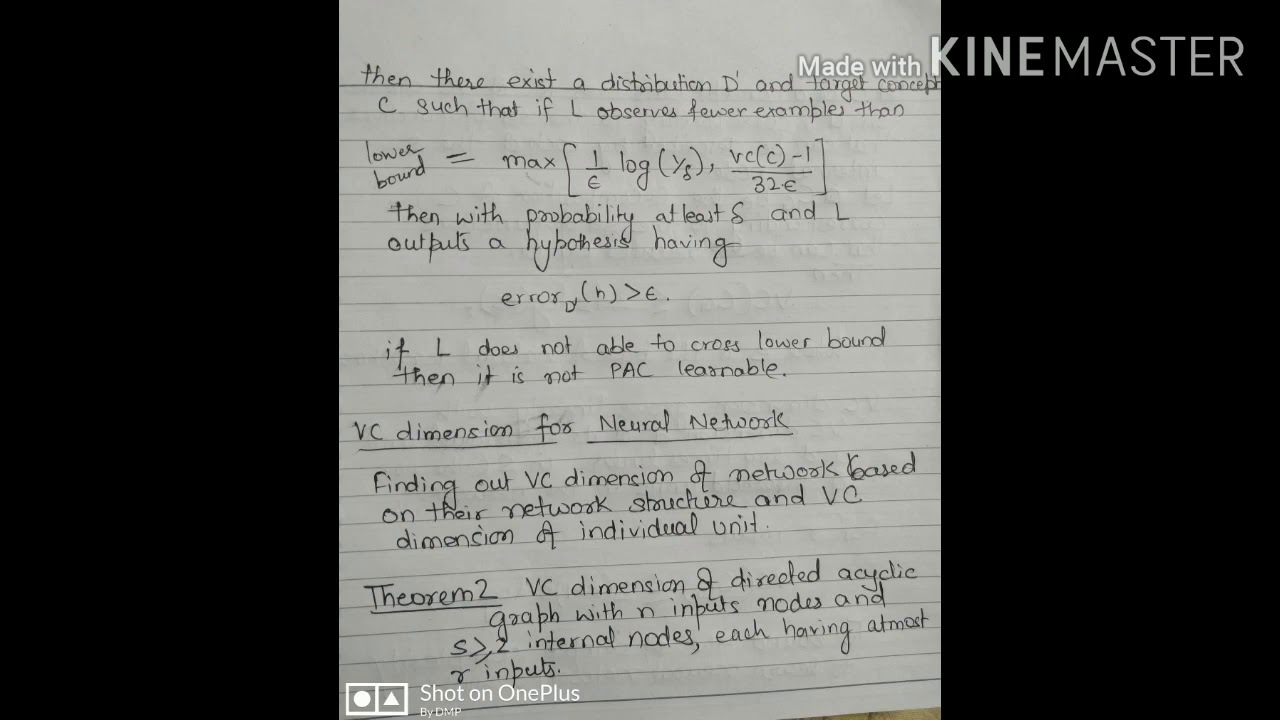 Made with KINEMASTER
then there exist a distribution D' and target concept
C such that if L observes fewer examples than
lower bound = max [ 1/ε log(1/δ), VC(C)-1/32ε ]
then with probability atleast δ and L
outputs a hypothesis having
error_D'(h) > ε.
if L does not able to cross lower bound
then it is not PAC learnable.
VC dimension for Neural Network
Finding out VC dimension of network based
on their network structure and VC
dimension of individual unit.
Theorem 2 VC dimension of directed acyclic
graph with n inputs nodes and
s ≥ 2 internal nodes, each having atmost
r inputs.
Shot on OnePlus
By DMP